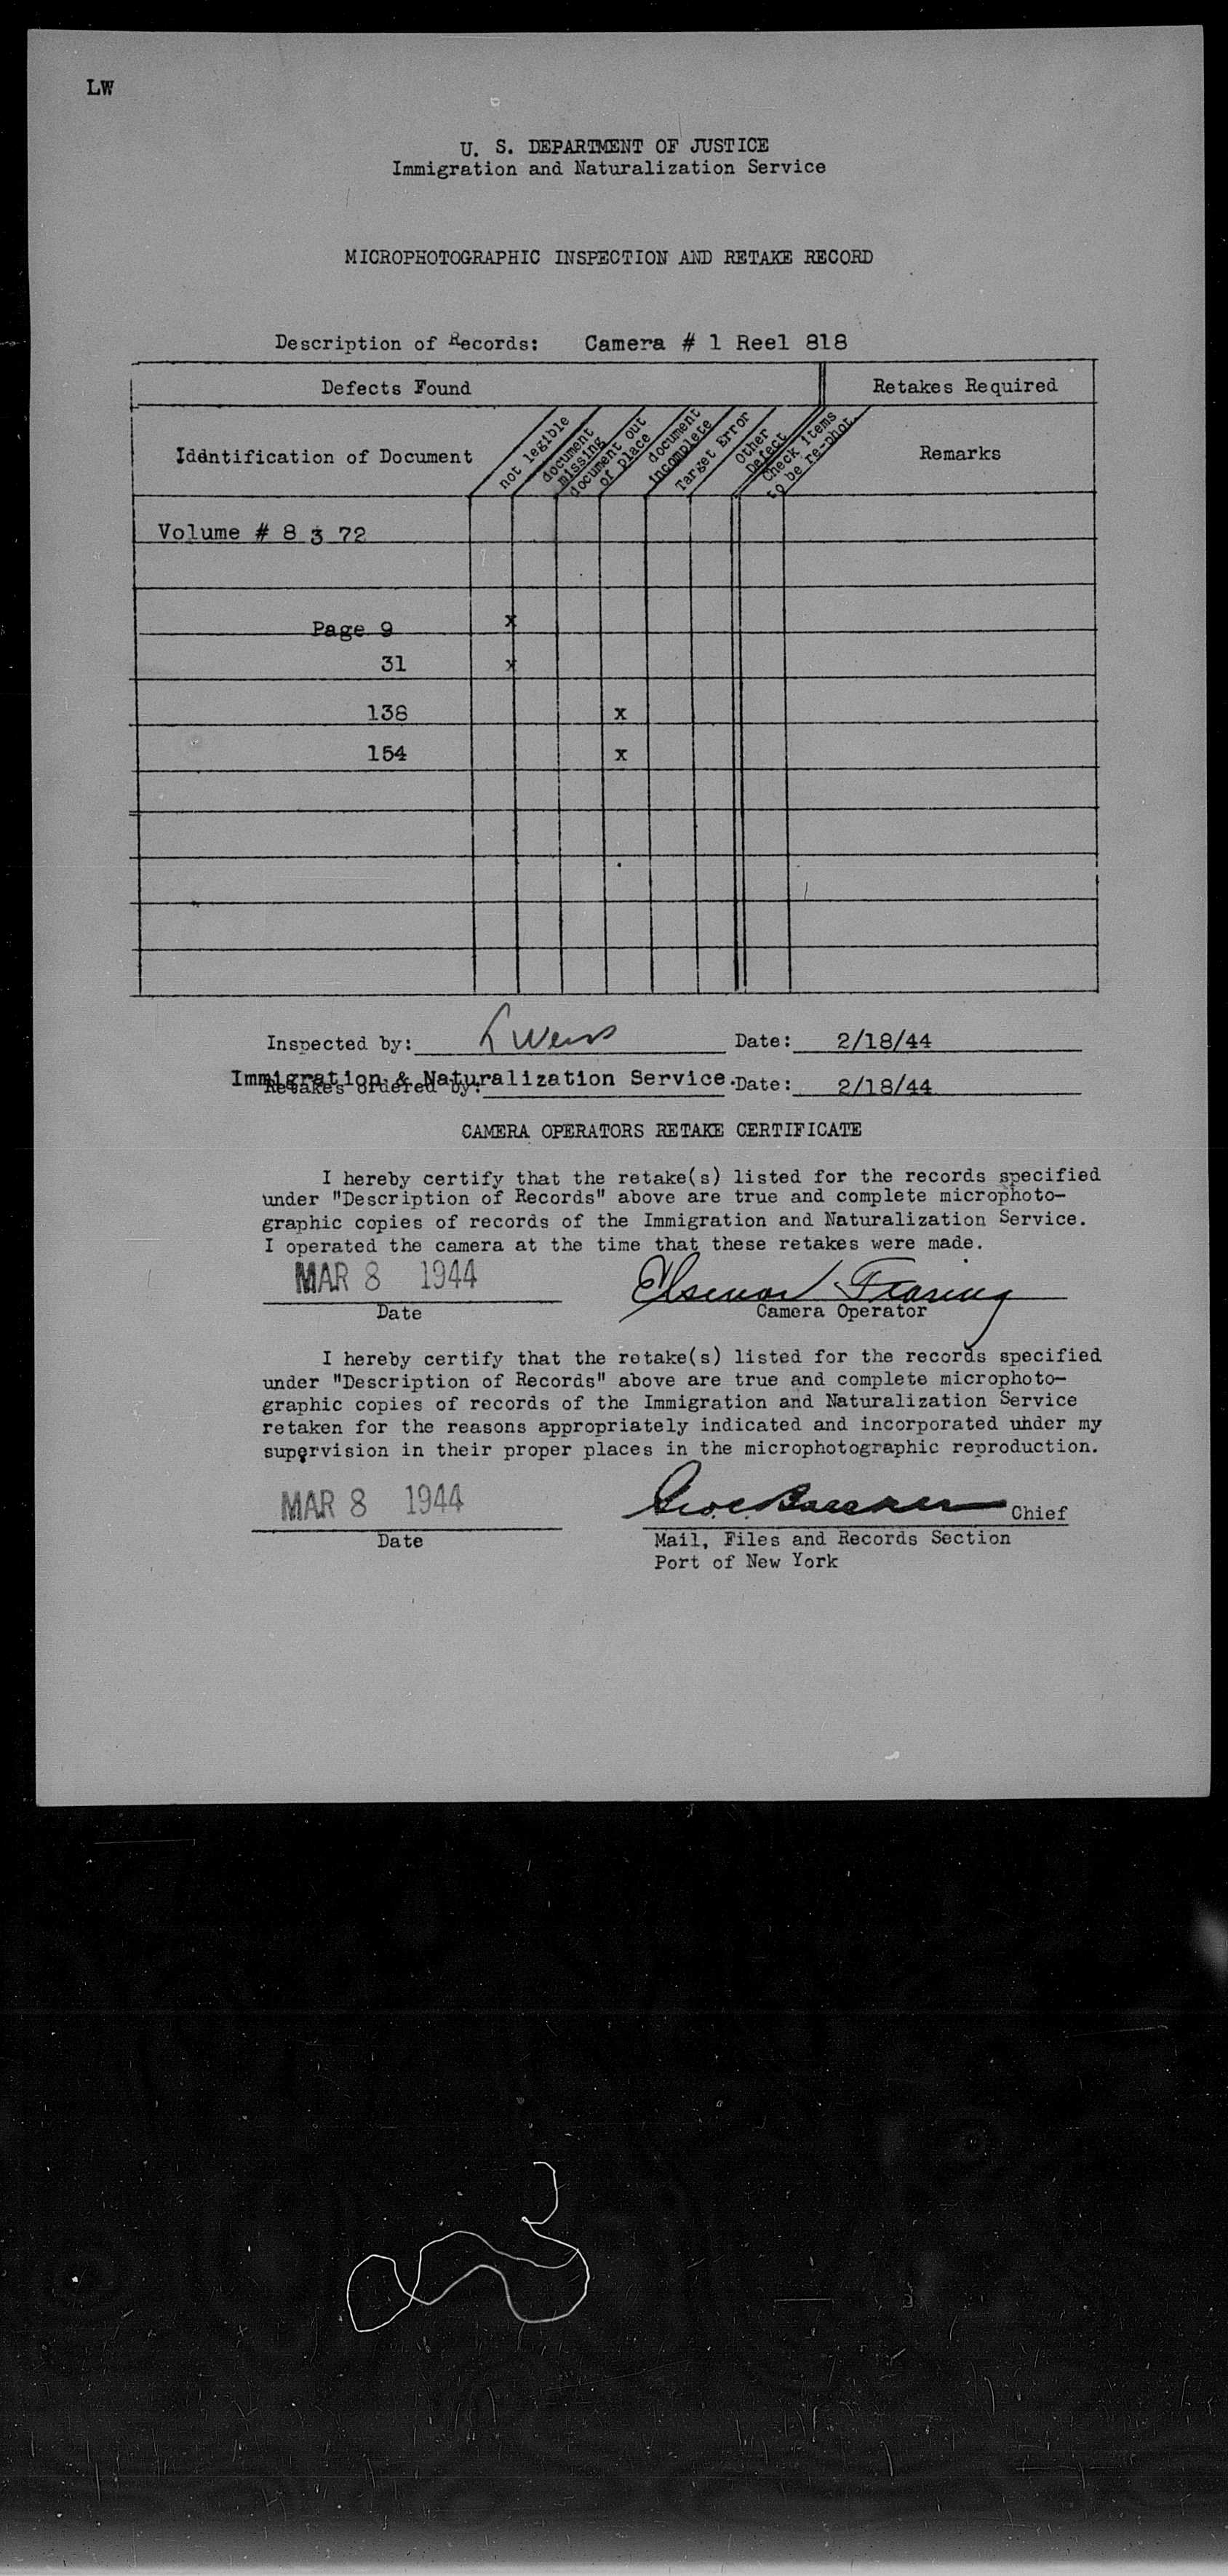 LW
U. S. DEPARTMENT OF JUSTICE
Immigration and Naturalization Service
MICROPHOTOGRAPHIC INSPECTION AND RETAKE RECORD
Description of Records: Camera # 1 Reel 818
Defects Found
Retakes Required
Identification of Document
not legible
document
missing
document out
of place
document
incomplete
Target Error
Other
Defect
Check items
to be re-phot.
Remarks
Volume # 8 3 72
Page 9 x
31 x
138 x
154 x
Inspected by: L Weiss Date: 2/18/44
Immigration & Naturalization Service.
Retakes ordered by: Date: 2/18/44
CAMERA OPERATORS RETAKE CERTIFICATE
I hereby certify that the retake(s) listed for the records specified
under "Description of Records" above are true and complete microphoto-
graphic copies of records of the Immigration and Naturalization Service.
I operated the camera at the time that these retakes were made.
MAR 8 1944
Date
Camera Operator
I hereby certify that the retake(s) listed for the records specified
under "Description of Records" above are true and complete microphoto-
graphic copies of records of the Immigration and Naturalization Service
retaken for the reasons appropriately indicated and incorporated under my
supervision in their proper places in the microphotographic reproduction.
MAR 8 1944
Chief
Date
Mail, Files and Records Section
Port of New York